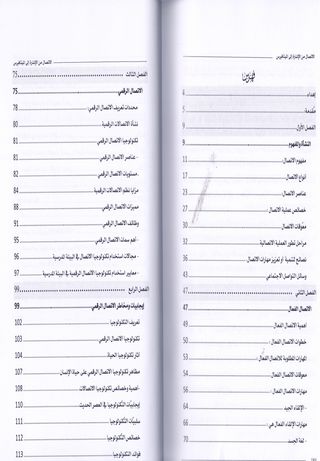 الاتصال من الإشارة إلى الميتافيرس
فهرس
إهداء 4
مقدمة 5
الفصل الأول 9
النشأة والمفهوم 9
مفهوم الاتصال 11
أنواع الاتصال 17
عناصر الاتصال 23
خصائص عملية الاتصال 27
معوقات الاتصال 30
مراحل تطور العملية الاتصالية 32
نصائح لتنمية أو تعزيز مهارات الاتصال 36
وسائل التواصل الاجتماعي 43
الفصل الثاني 47
الاتصال الفعال 47
أهمية الاتصال الفعال 49
خطوات الاتصال الفعال 50
المهارات المطلوبة للاتصال الفعال 53
معوقات الاتصال الفعال 54
مهارات الاتصال الفعال 56
- الإلقاء الجيد 64
مهارات الإلقاء الفعال هي 66
- لغة الجسد 70
الاتصال من الإشارة إلى الميتافيرس
الفصل الثالث 75
الاتصال الرقمي 75
محددات تعريف الاتصال الرقمي 78
نشأة الاتصالات الرقمية 80
تكنولوجيا الاتصال الرقمي 81
- عناصر الاتصال الرقمي 81
- مستويات الاتصال الرقمي 82
مزايا نظم الاتصالات الرقمية 84
مميزات الاتصال الرقمي 88
وظائف الاتصال الرقمي 91
- أهم سمات الاتصال الرقمي 95
- مجالات استخدام تكنولوجيا الاتصال في البيئة المدرسية 96
- معايير استخدام تكنولوجيا الاتصال الرقمية في البيئة المدرسية 97
الفصل الرابع 99
إيجابيات ومخاطر الاتصال الرقمي 99
تعريف التكنولوجيا 102
تكنولوجيا الاتصال الرقمي 103
آثار تكنولوجيا الحياة 104
مظاهر تكنولوجيا الاتصال الرقمي على حياة الإنسان 107
- أهمية وخصائص تكنولوجيا الاتصالات 108
إيجابيات التكنولوجيا في العصر الحديث 110
سلبيات التكنولوجيا 111
خصائص التكنولوجيا 112
فوائد التكنولوجيا 113